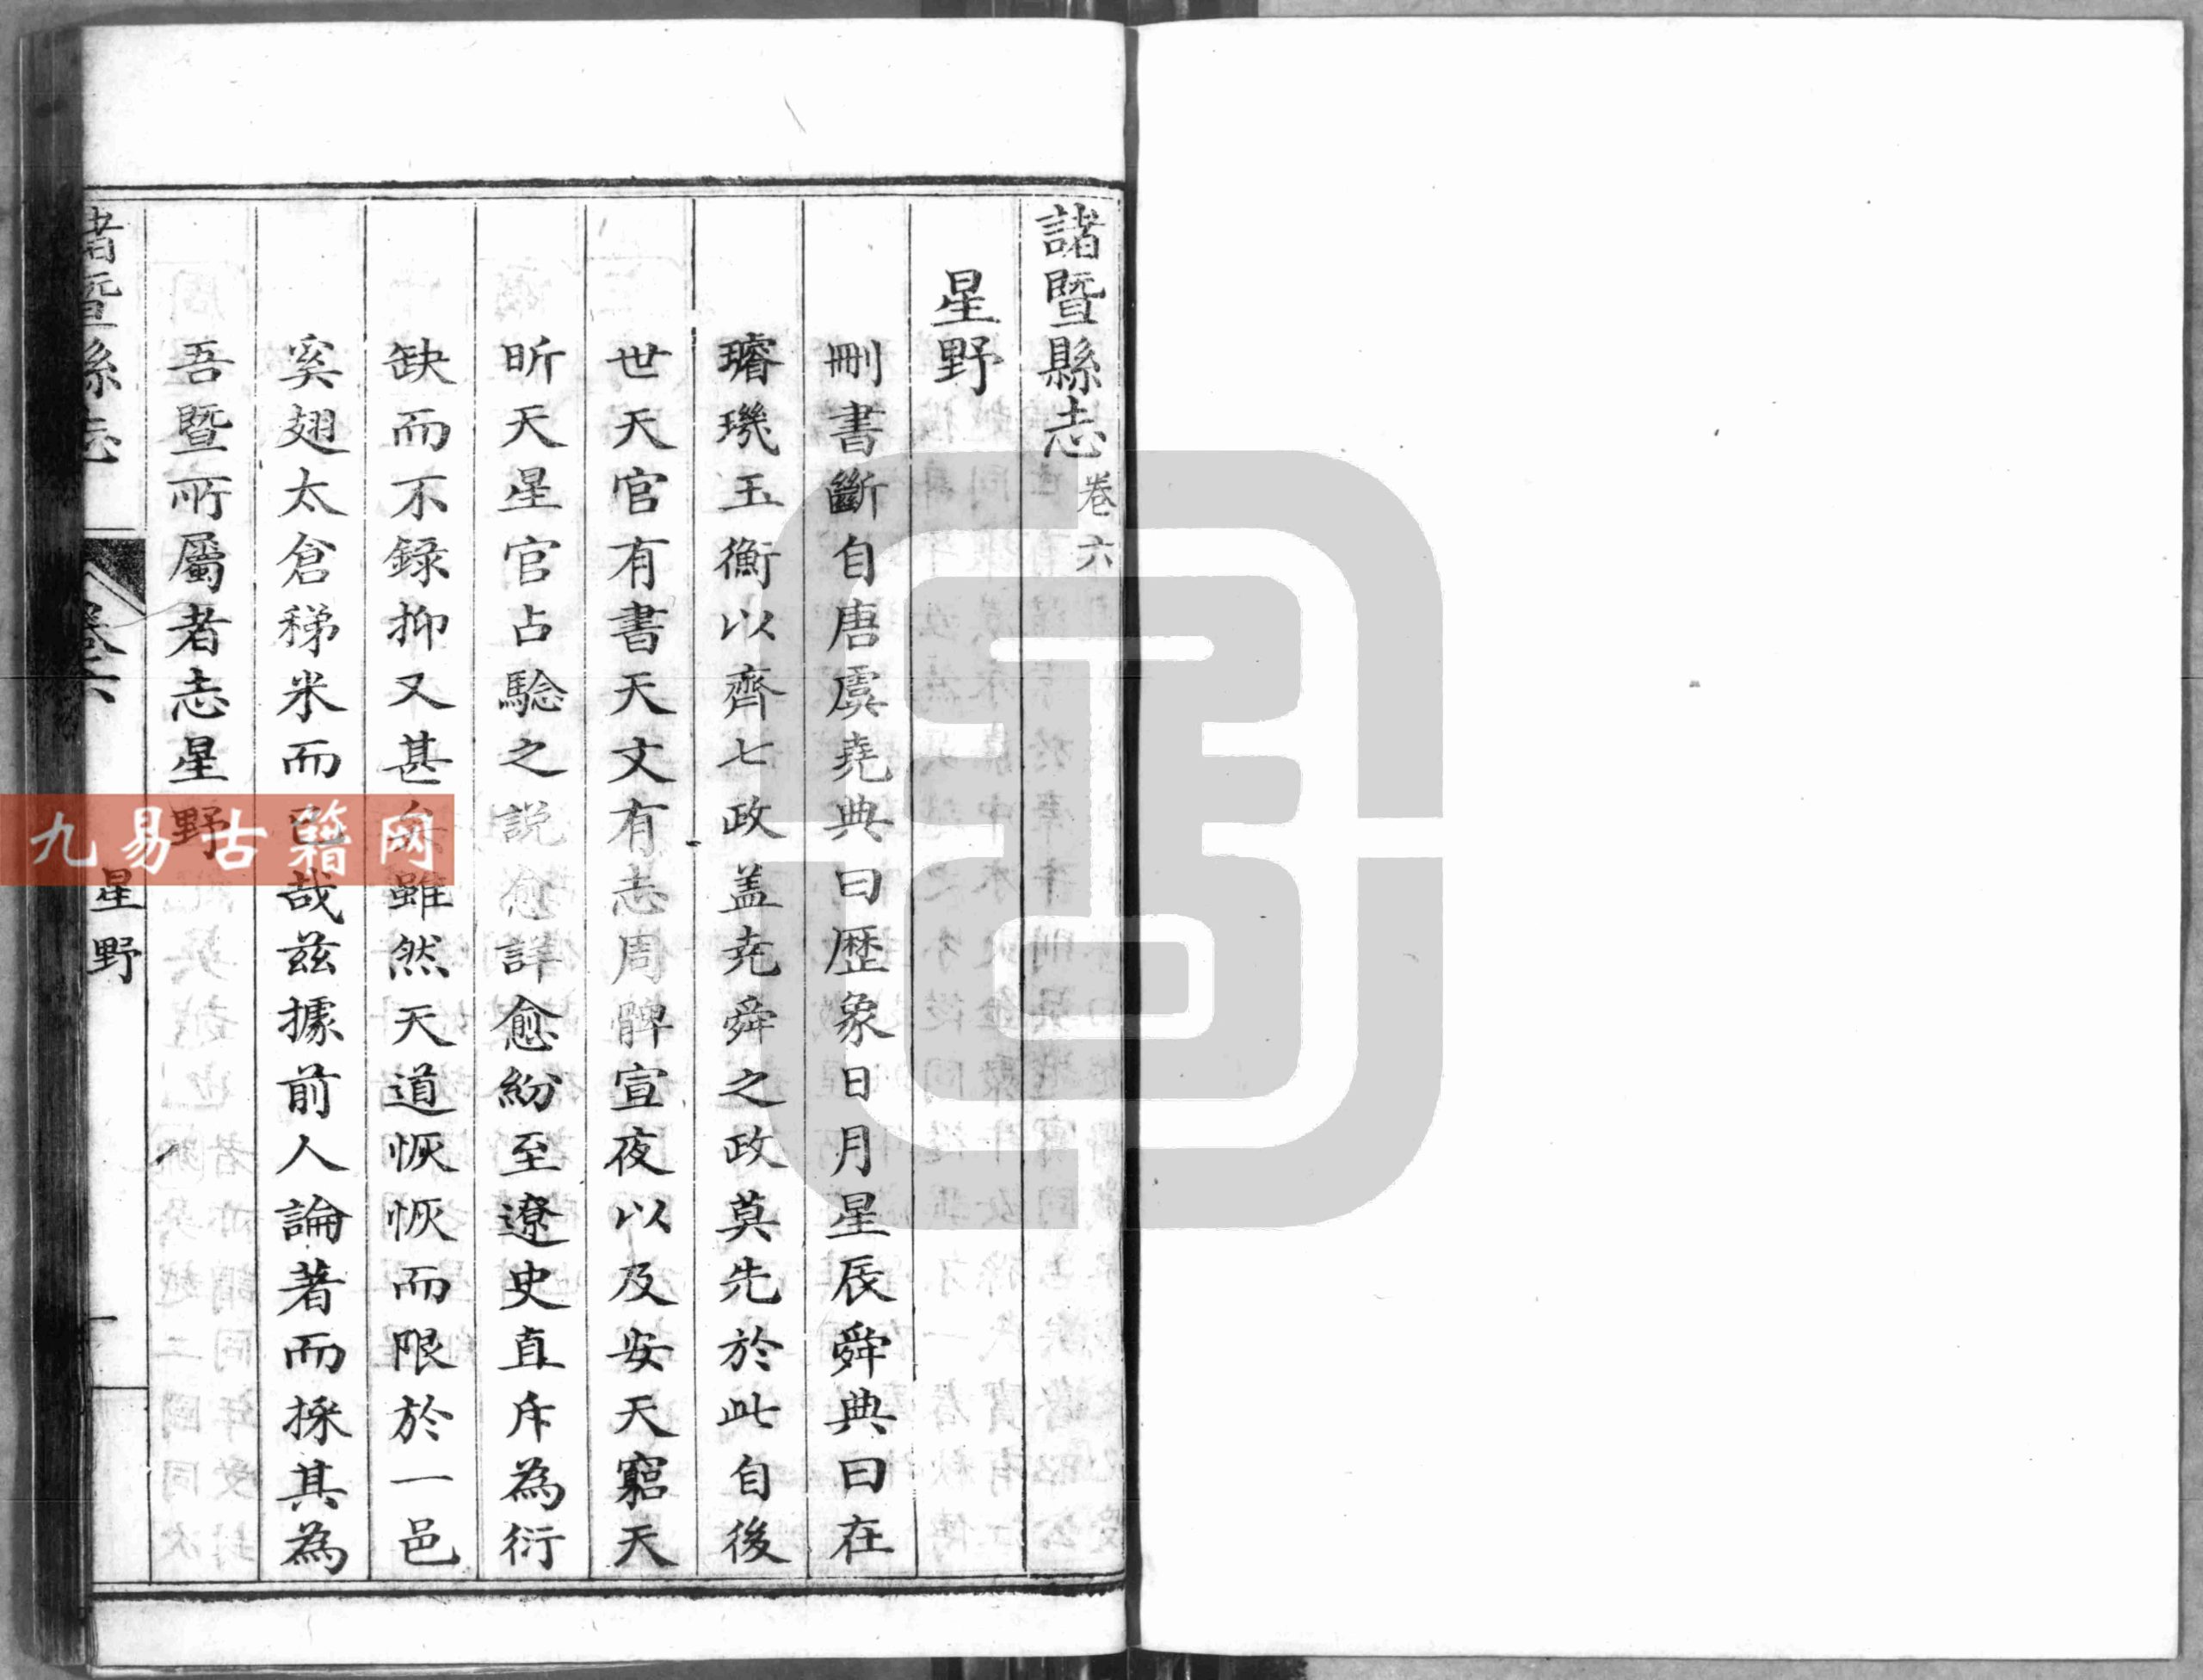 諸暨縣志卷六
星野
刪書斷自唐虞堯典曰歷象日月星辰舜典曰在
璿璣玉衡以齊七政盖堯舜之政莫先於此自後
世天官有書天文有志周髀宣夜以及安天窮天
昕天星官占驗之説愈詳愈紛至遼史直斥為衍
缺而不錄抑又甚矣雖然天道恢恢而限於一邑
奚翅太倉稊米而已哉兹據前人論著而採其為
吾暨所屬者志星野
諸暨縣志
卷六
星野
一
九易古籍网